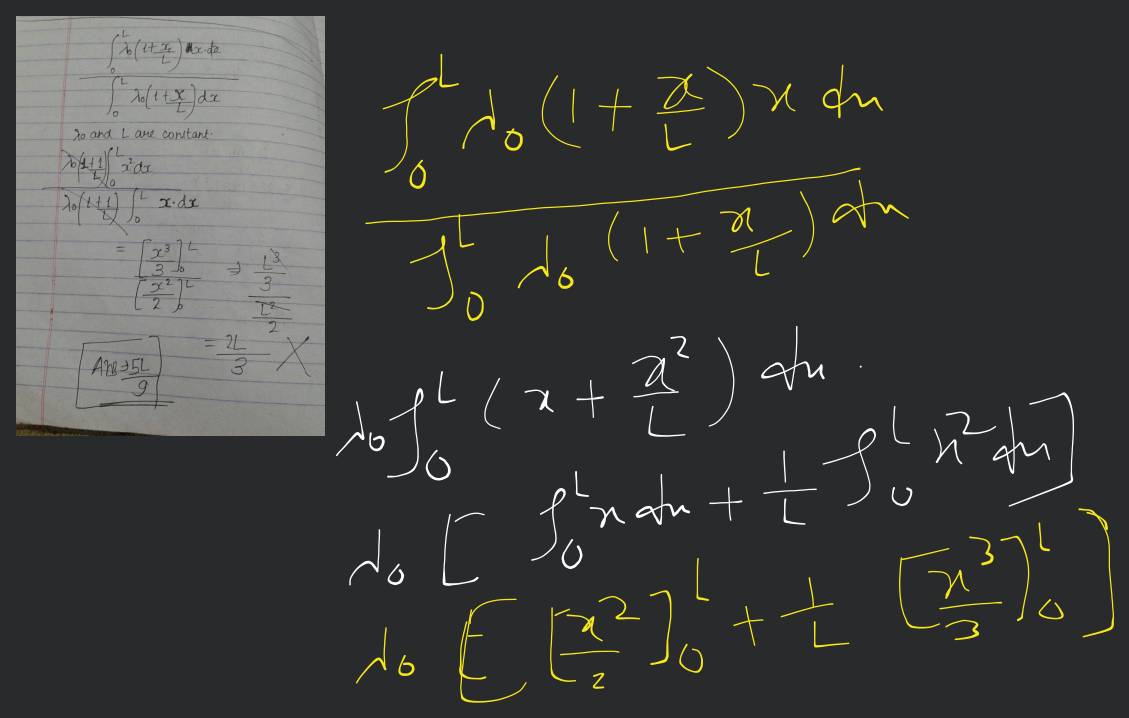 ∫₀ᴸ λ₀(1+x/L) x·dx
∫₀ᴸ λ₀(1+x/L)dx
λ₀ and L are constant.
λ₀(1+1/L)∫₀ᴸ x²dx
λ₀(1+1/L) ∫₀ᴸ x·dx
= [x³/3]₀ᴸ / [x²/2]₀ᴸ ⇒ L³/3 / L²/2
= 2L/3 ✗
Ans ⇒ 5L/9
∫₀ᴸ λ₀(1 + x/L) x dx
∫₀ᴸ λ₀ (1 + x/L) dx
λ₀ ∫₀ᴸ (x + x²/L) dx.
λ₀ [ ∫₀ᴸ x dx + 1/L ∫₀ᴸ x² dx ]
λ₀ [ [x²/2]₀ᴸ + 1/L [x³/3]₀ᴸ ]